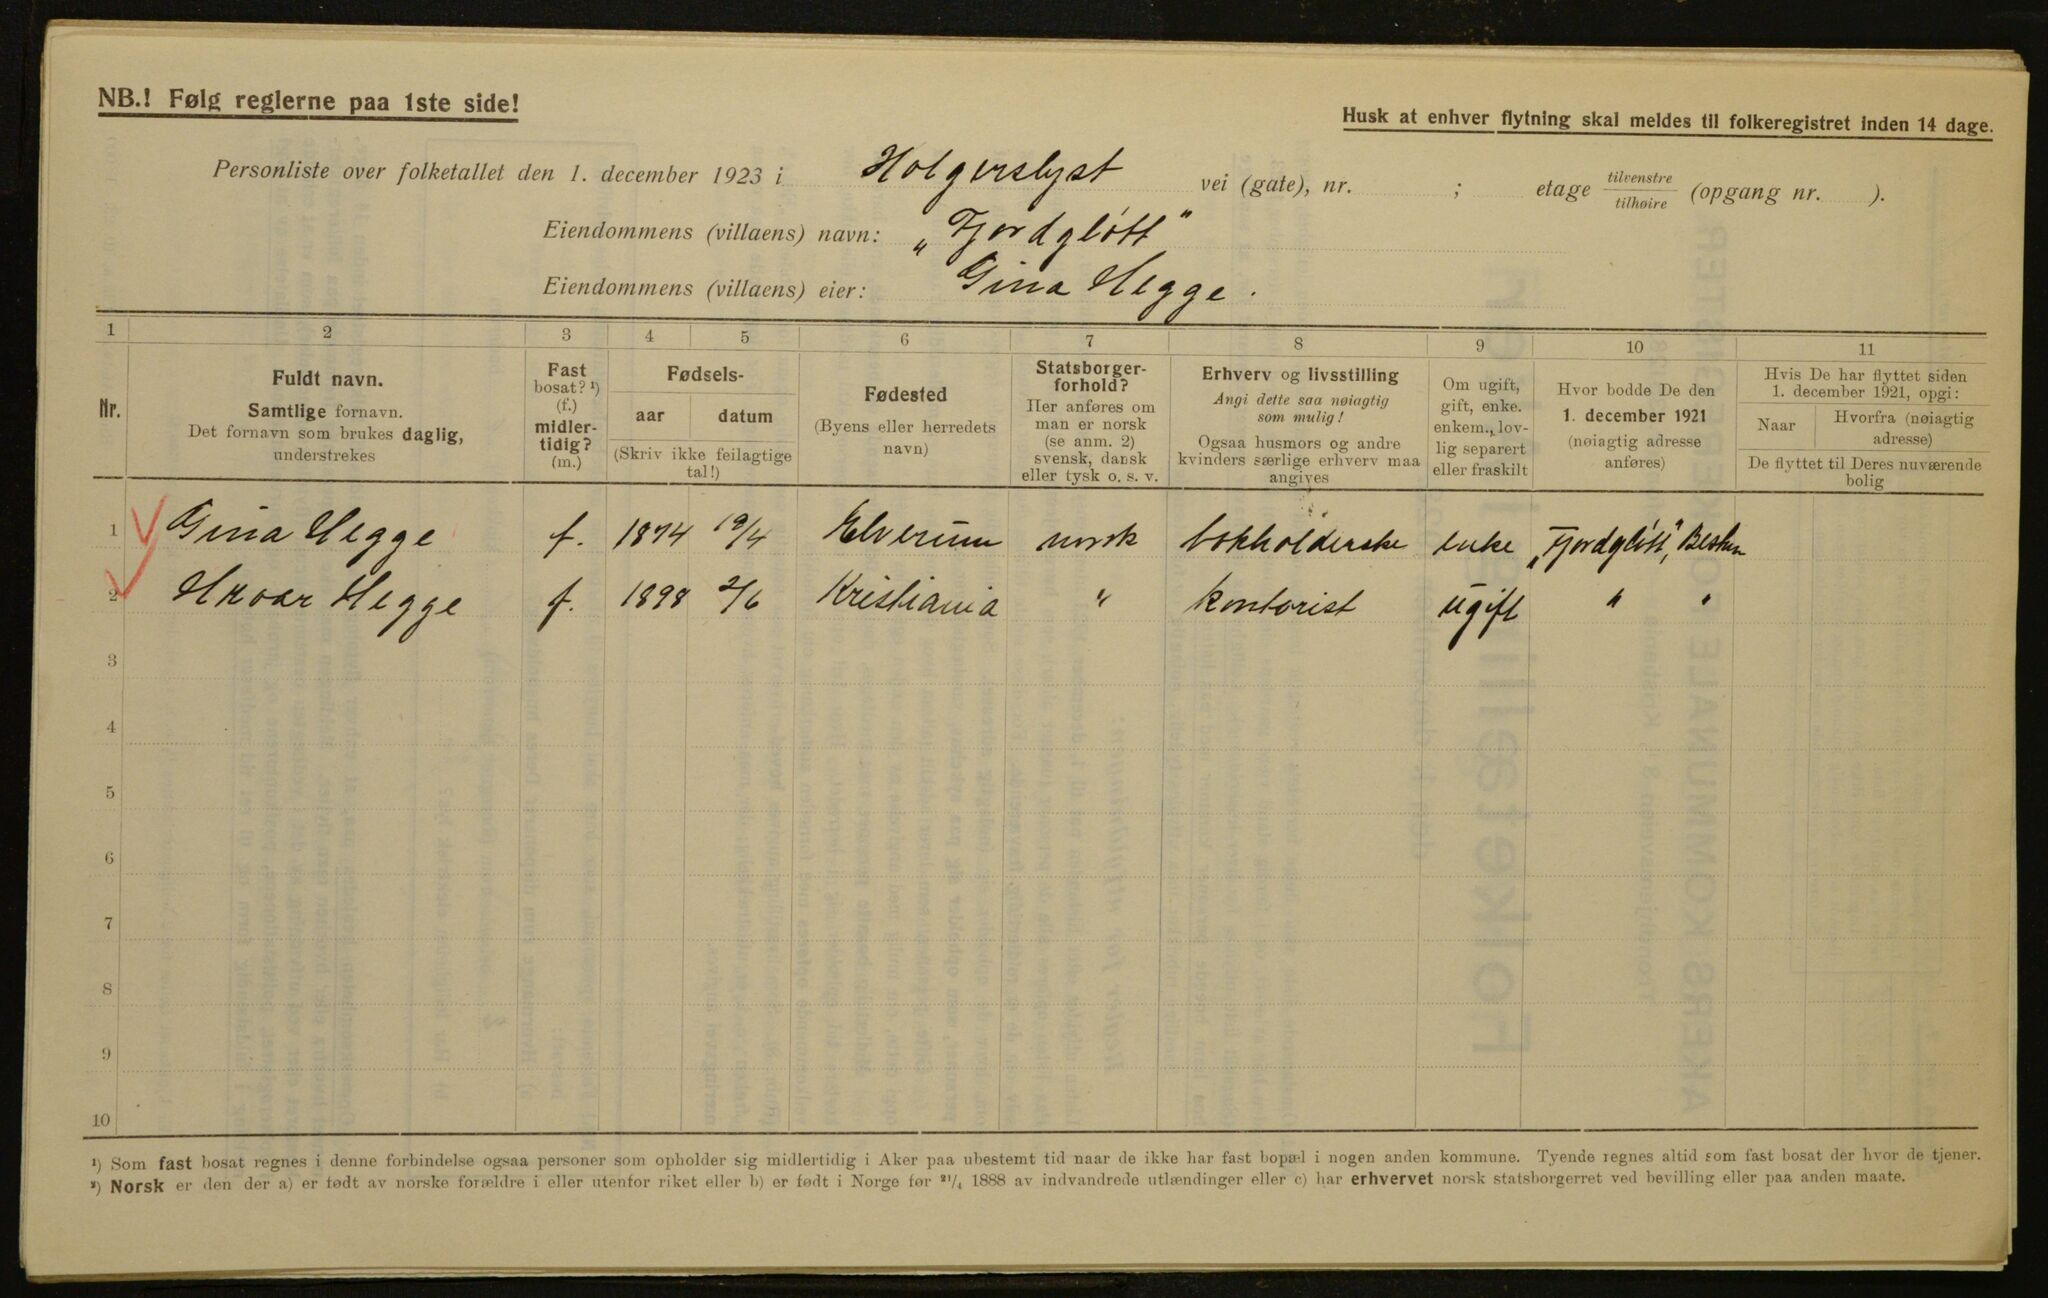 NB.! Følg reglerne paa 1ste side!
Husk at enhver flytning skal meldes til folkeregistret inden 14 dage.
Personliste over folketallet den 1. december 1923 i Holgerslyst vei (gate), nr. ; etage tilvenstre tilhøire (opgang nr. ).
Eiendommens (villaens) navn: „Fjordgløtt"
Eiendommens (villaens) eier: Gina Hegge.
1 2 3 4 5 6 7 8 9 10 11
Nr.
Fuldt navn.
Samtlige fornavn.
Det fornavn som brukes daglig,
understrekes
Fast
bosat? ¹)
(f.)
midler-
tidig?
(m.)
Fødsels-
aar datum
(Skriv ikke feilagtige
tal!)
Fødested
(Byens eller herredets
navn)
Statsborger-
forhold?
Her anføres om
man er norsk
(se anm. 2)
svensk, dansk
eller tysk o. s. v.
Erhverv og livsstilling
Angi dette saa nøiagtig
som mulig!
Ogsaa husmors og andre
kvinders særlige erhverv maa
angives
Om ugift,
gift, enke.
enkem., lov-
lig separert
eller fraskilt
Hvor bodde De den
1. december 1921
(nøiagtig adresse
anføres)
Hvis De har flyttet siden
1. december 1921, opgi:
Naar Hvorfra (nøiagtig
adresse)
De flyttet til Deres nuværende
bolig
1 Gina Hegge f. 1874 19/4 Elverum norsk bokholderske enke „Fjordgløtt", Bestun
2 Hroar Hegge f. 1898 2/6 Kristiania " kontorist ugift " "
3
4
5
6
7
8
9
10
¹) Som fast bosat regnes i denne forbindelse ogsaa personer som opholder sig midlertidig i Aker paa ubestemt tid naar de ikke har fast bopæl i nogen anden kommune. Tyende regnes altid som fast bosat der hvor de tjener.
²) Norsk er den der a) er født av norske forældre i eller utenfor riket eller b) er født i Norge før ²¹/₄ 1888 av indvandrede utlændinger eller c) har erhvervet norsk statsborgerret ved bevilling eller paa anden maate.